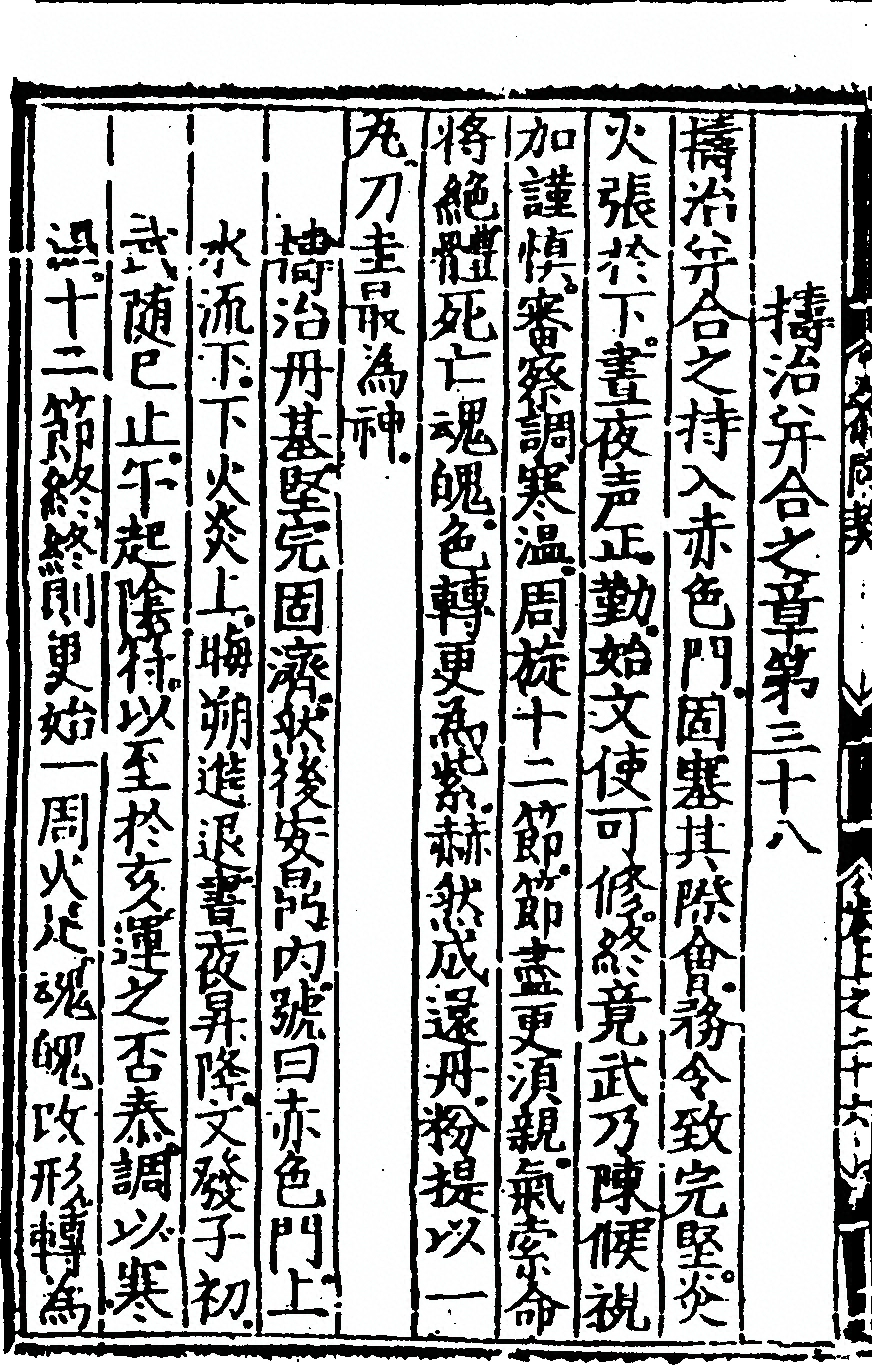 擣治并合之章第三十八
擣治并合之持入赤色門。固塞其際會。務令致完堅。炎
火張於下。晝夜声正勤。始文使可修。終竟武乃陳。候視
加謹慎。審察調寒温。周旋十二節。節盡更須親。氣索命
將絶。體死亡魂魄。色轉更為紫。赫然成還丹。粉提以一
丸。刀圭最為神。
擣治丹基堅完固濟。然後安鼎内。號曰赤色門。上
水流下。下火炎上。晦朔進退。晝夜昇降。文發子初。
武随巳止。午起陰符。以至於亥。運之否泰。調以寒
温。十二節終。終則更始。一周火足。魂魄改形。轉為